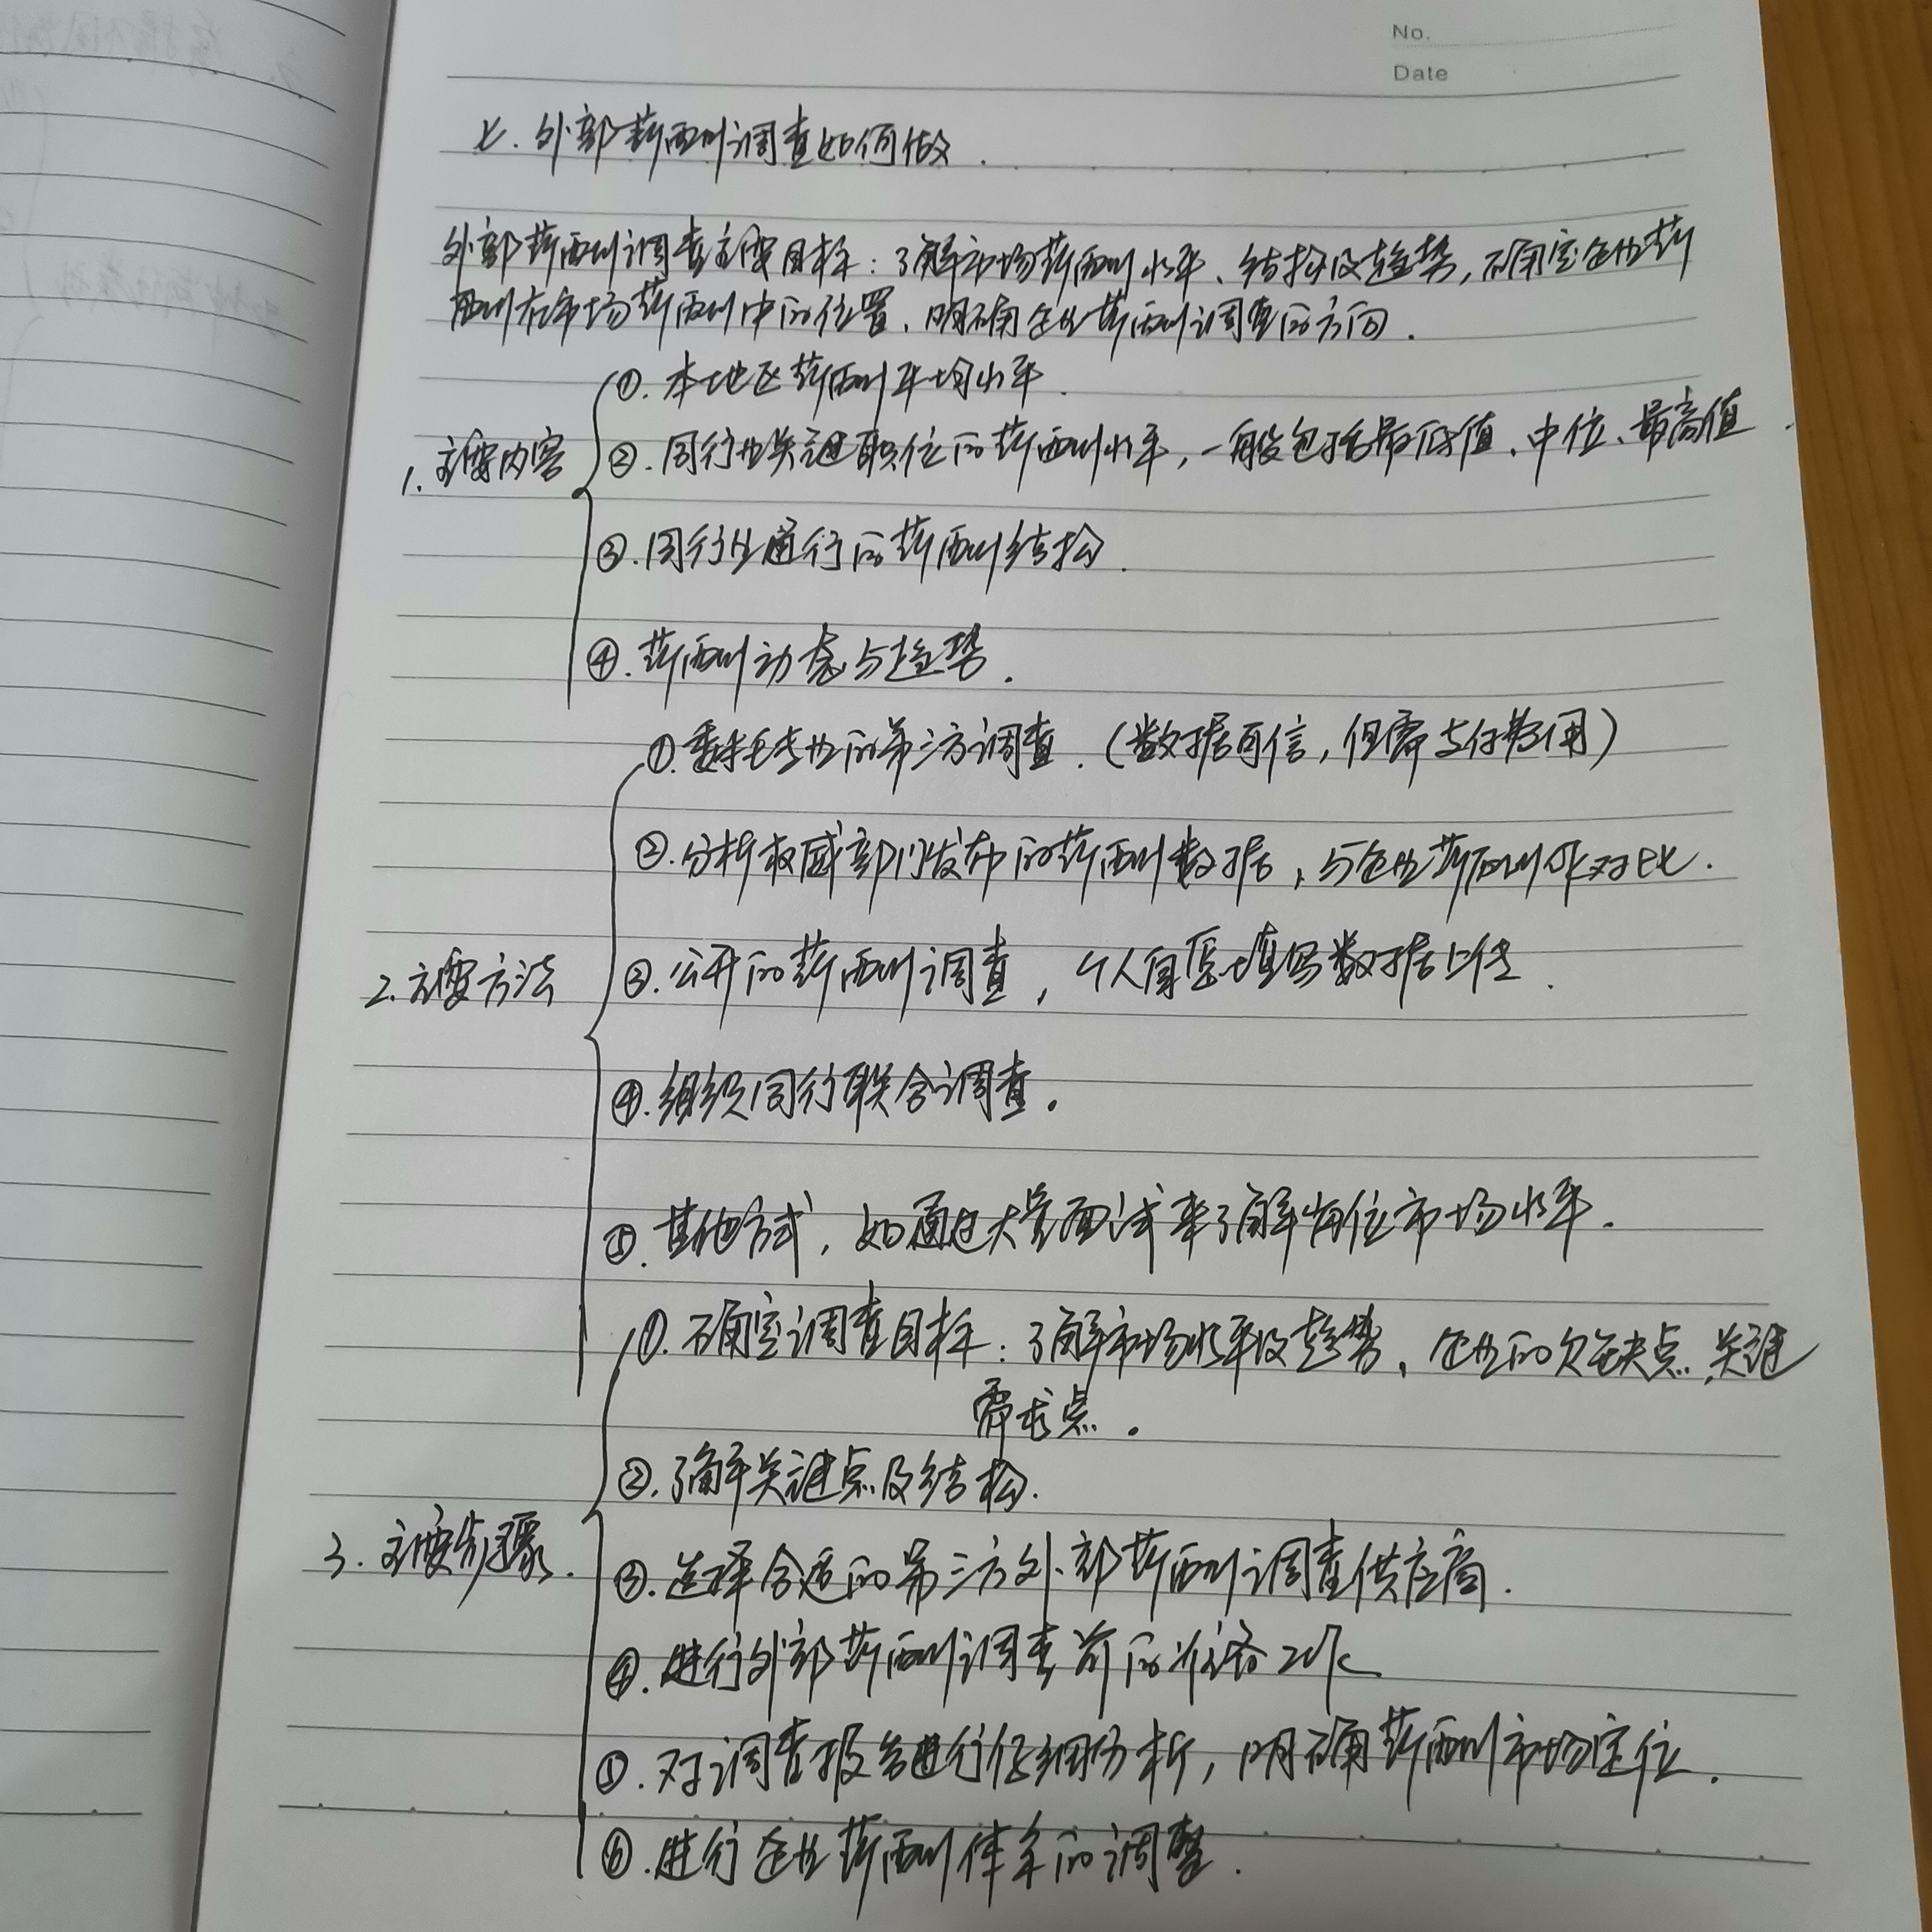 No.
Date
七. 外部薪酬调查如何做.
外部薪酬调查主要目标：了解市场薪酬水平、结构及趋势，确定企业薪
酬在市场薪酬中的位置、明确企业薪酬调查的方向.
1. 主要内容
①. 本地区薪酬平均水平.
②. 同行业关键职位的薪酬水平，一般包括最低值、中位、最高值.
③. 同行业通行的薪酬结构.
④. 薪酬动态与趋势.
2. 主要方法
①. 委托专业的第三方调查.（数据可信，但需支付费用）
②. 分析权威部门发布的薪酬数据，与企业薪酬作对比.
③. 公开的薪酬调查，个人自愿填写数据上传.
④. 组织同行联合调查。
⑤. 其他方式，如通过大量面试来了解岗位市场水平.
3. 主要步骤.
①. 确定调查目标：了解市场水平及趋势、企业的欠缺点、关键
需求点。
②. 了解关键点及结构.
③. 选择合适的第三方外部薪酬调查供应商.
④. 进行外部薪酬调查前的准备工作
⑤. 对调查报告进行仔细分析，明确薪酬市场定位.
⑥. 进行企业薪酬体系的调整.